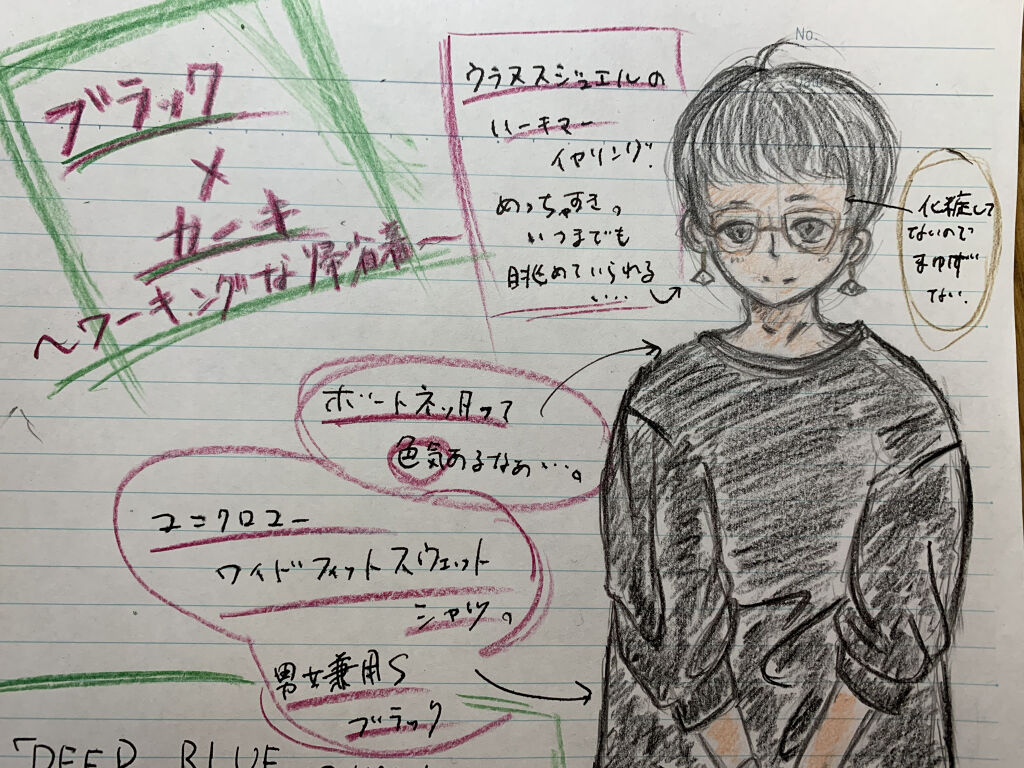 No.
ブラック
×
カーキ
〜ワーキングな帰省着〜
ウラヌスジュエルの
ハーキマー
イヤリング!
めっちゃすき。
いつまでも
眺めていられる
....
化粧して
ないので
まゆげ
ない.
ボートネックって
色気あるなぁ…。
ユニクロユー
ワイドフィットスウェット
シャツ。
男女兼用S
ブラック
「DEEP BLUE